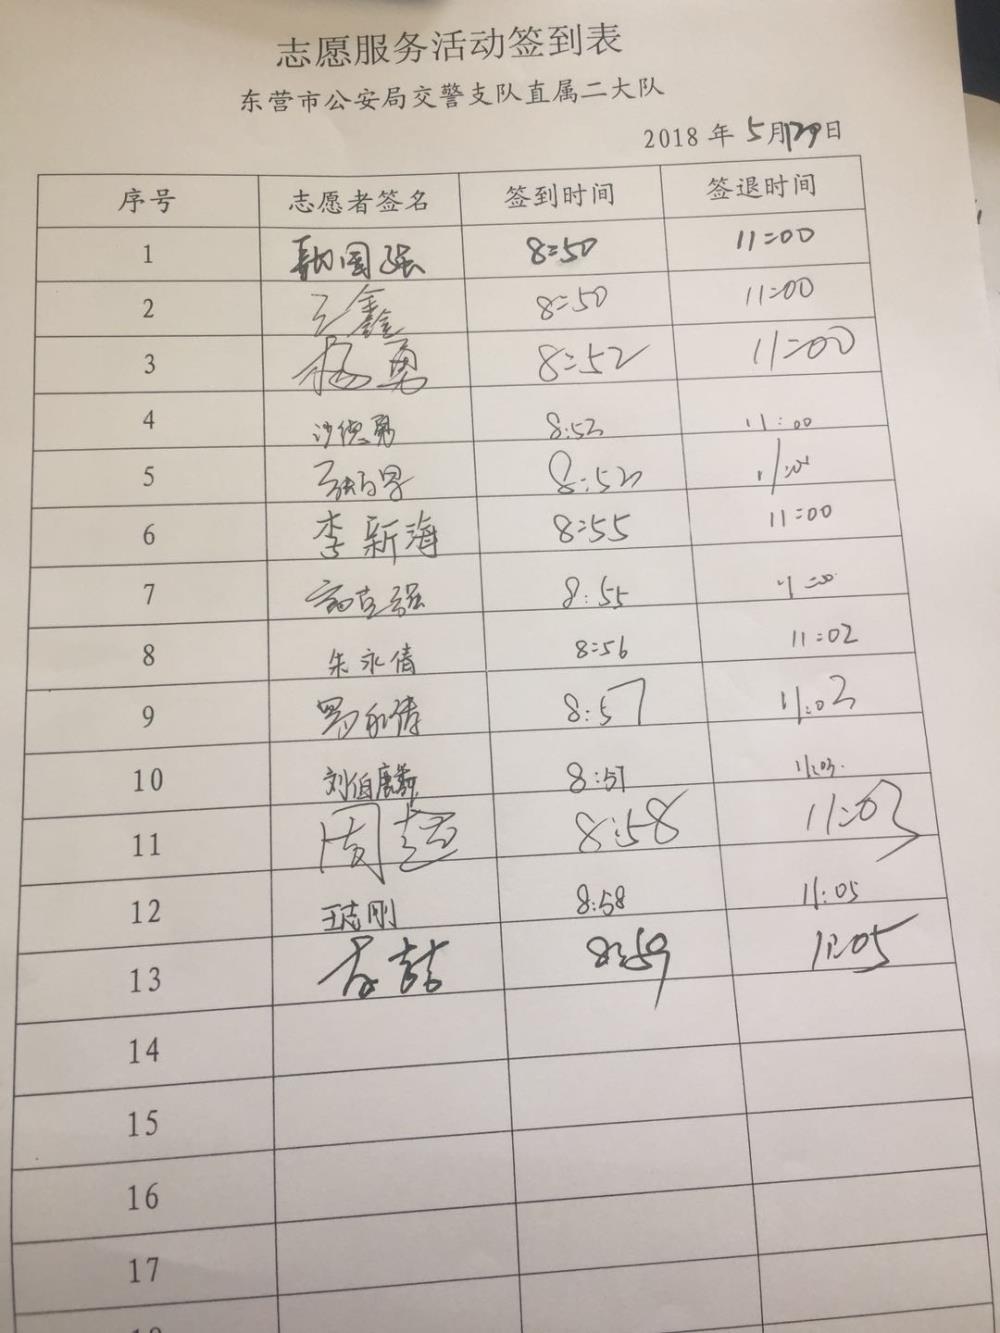 志愿服务活动签到表
东营市公安局交警支队直属二大队
2018 年 5月29日
序号 志愿者签名 签到时间 签退时间
1 国强 8:50 11:00
2 王鑫 8:50 11:00
3 杨勇 8:52 11:00
4 沙德勇 8:52 11:00
5 8:52
6 李新海 8:55 11:00
7 强 8:55
8 朱永倩 8:56 11:02
9 8:57 11:03
10 刘伯麒 8:57 11:03
11 周超 8:58 11:03
12 王志刚 8:58 11:05
13 8:59 11:05
14
15
16
17